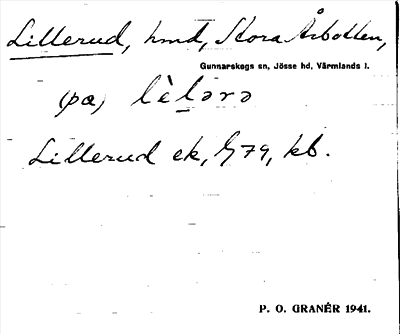 Lillerud, hmd, Stora Årbotten,
Gunnarskogs sn, Jösse hd, Värmlands l.
(pa) lèlərə
Lillerud ek, G79, kb.
P. O. GRANÉR 1941.